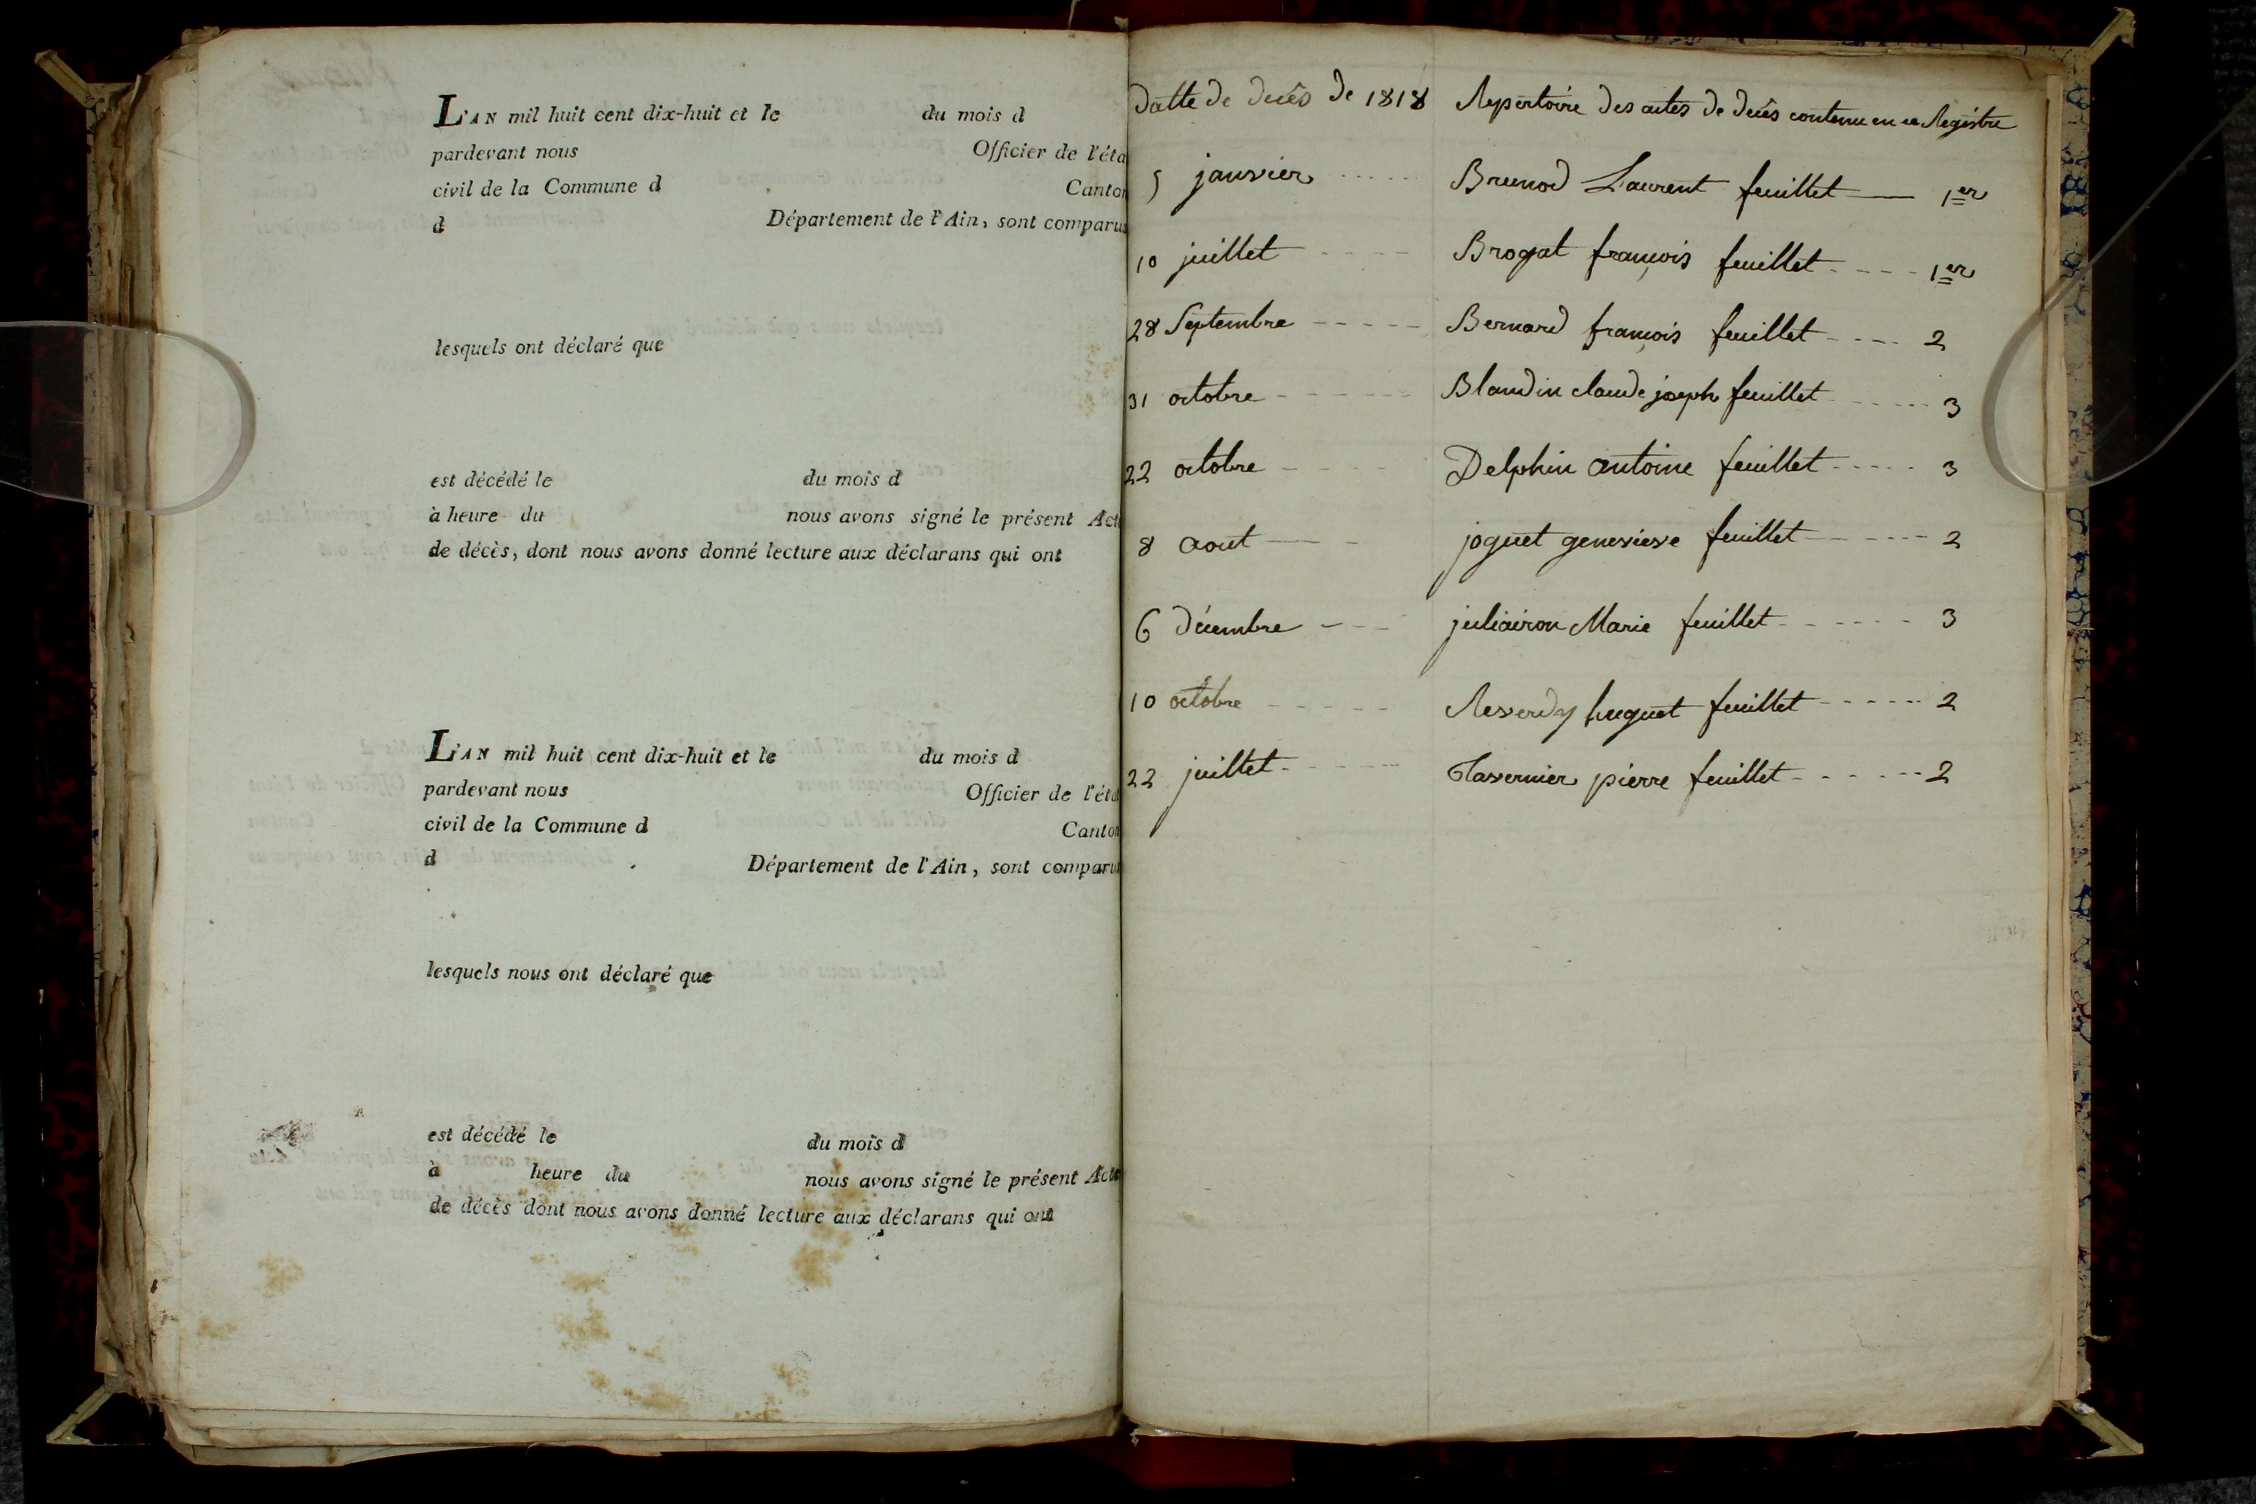 L'AN mil huit cent dix-huit et le du mois d
pardevant nous Officier de l'éta
civil de la Commune d Canton
d Département de l'Ain, sont comparus
lesquels ont déclaré que
est décédé le du mois d
à heure du nous avons signé le présent Acte
de décès, dont nous avons donné lecture aux déclarans qui ont
L'AN mil huit cent dix-huit et le du mois d
pardevant nous Officier de l'éta
civil de la Commune d Canton
d Département de l'Ain, sont comparu
lesquels nous ont déclaré que
est décédé le du mois d
à heure du nous avons signé le présent Acte
de décès dont nous avons donné lecture aux déclarans qui ont
Datte de decês de 1818 Repertoire des actes de decês contenu en ce Registre
5 janvier Brunod Laurent feuillet 1er
10 juillet Brogat françois feuillet 1er
28 Septembre Bernard françois feuillet 2
31 octobre Blandin claude joseph feuillet 3
22 octobre Delphin antoine feuillet 3
8 aout joguet genevieve feuillet 2
6 décembre juliairon Marie feuillet 3
10 octobre Reverdy huguet feuillet 2
22 juillet Tavernier pierre feuillet 2